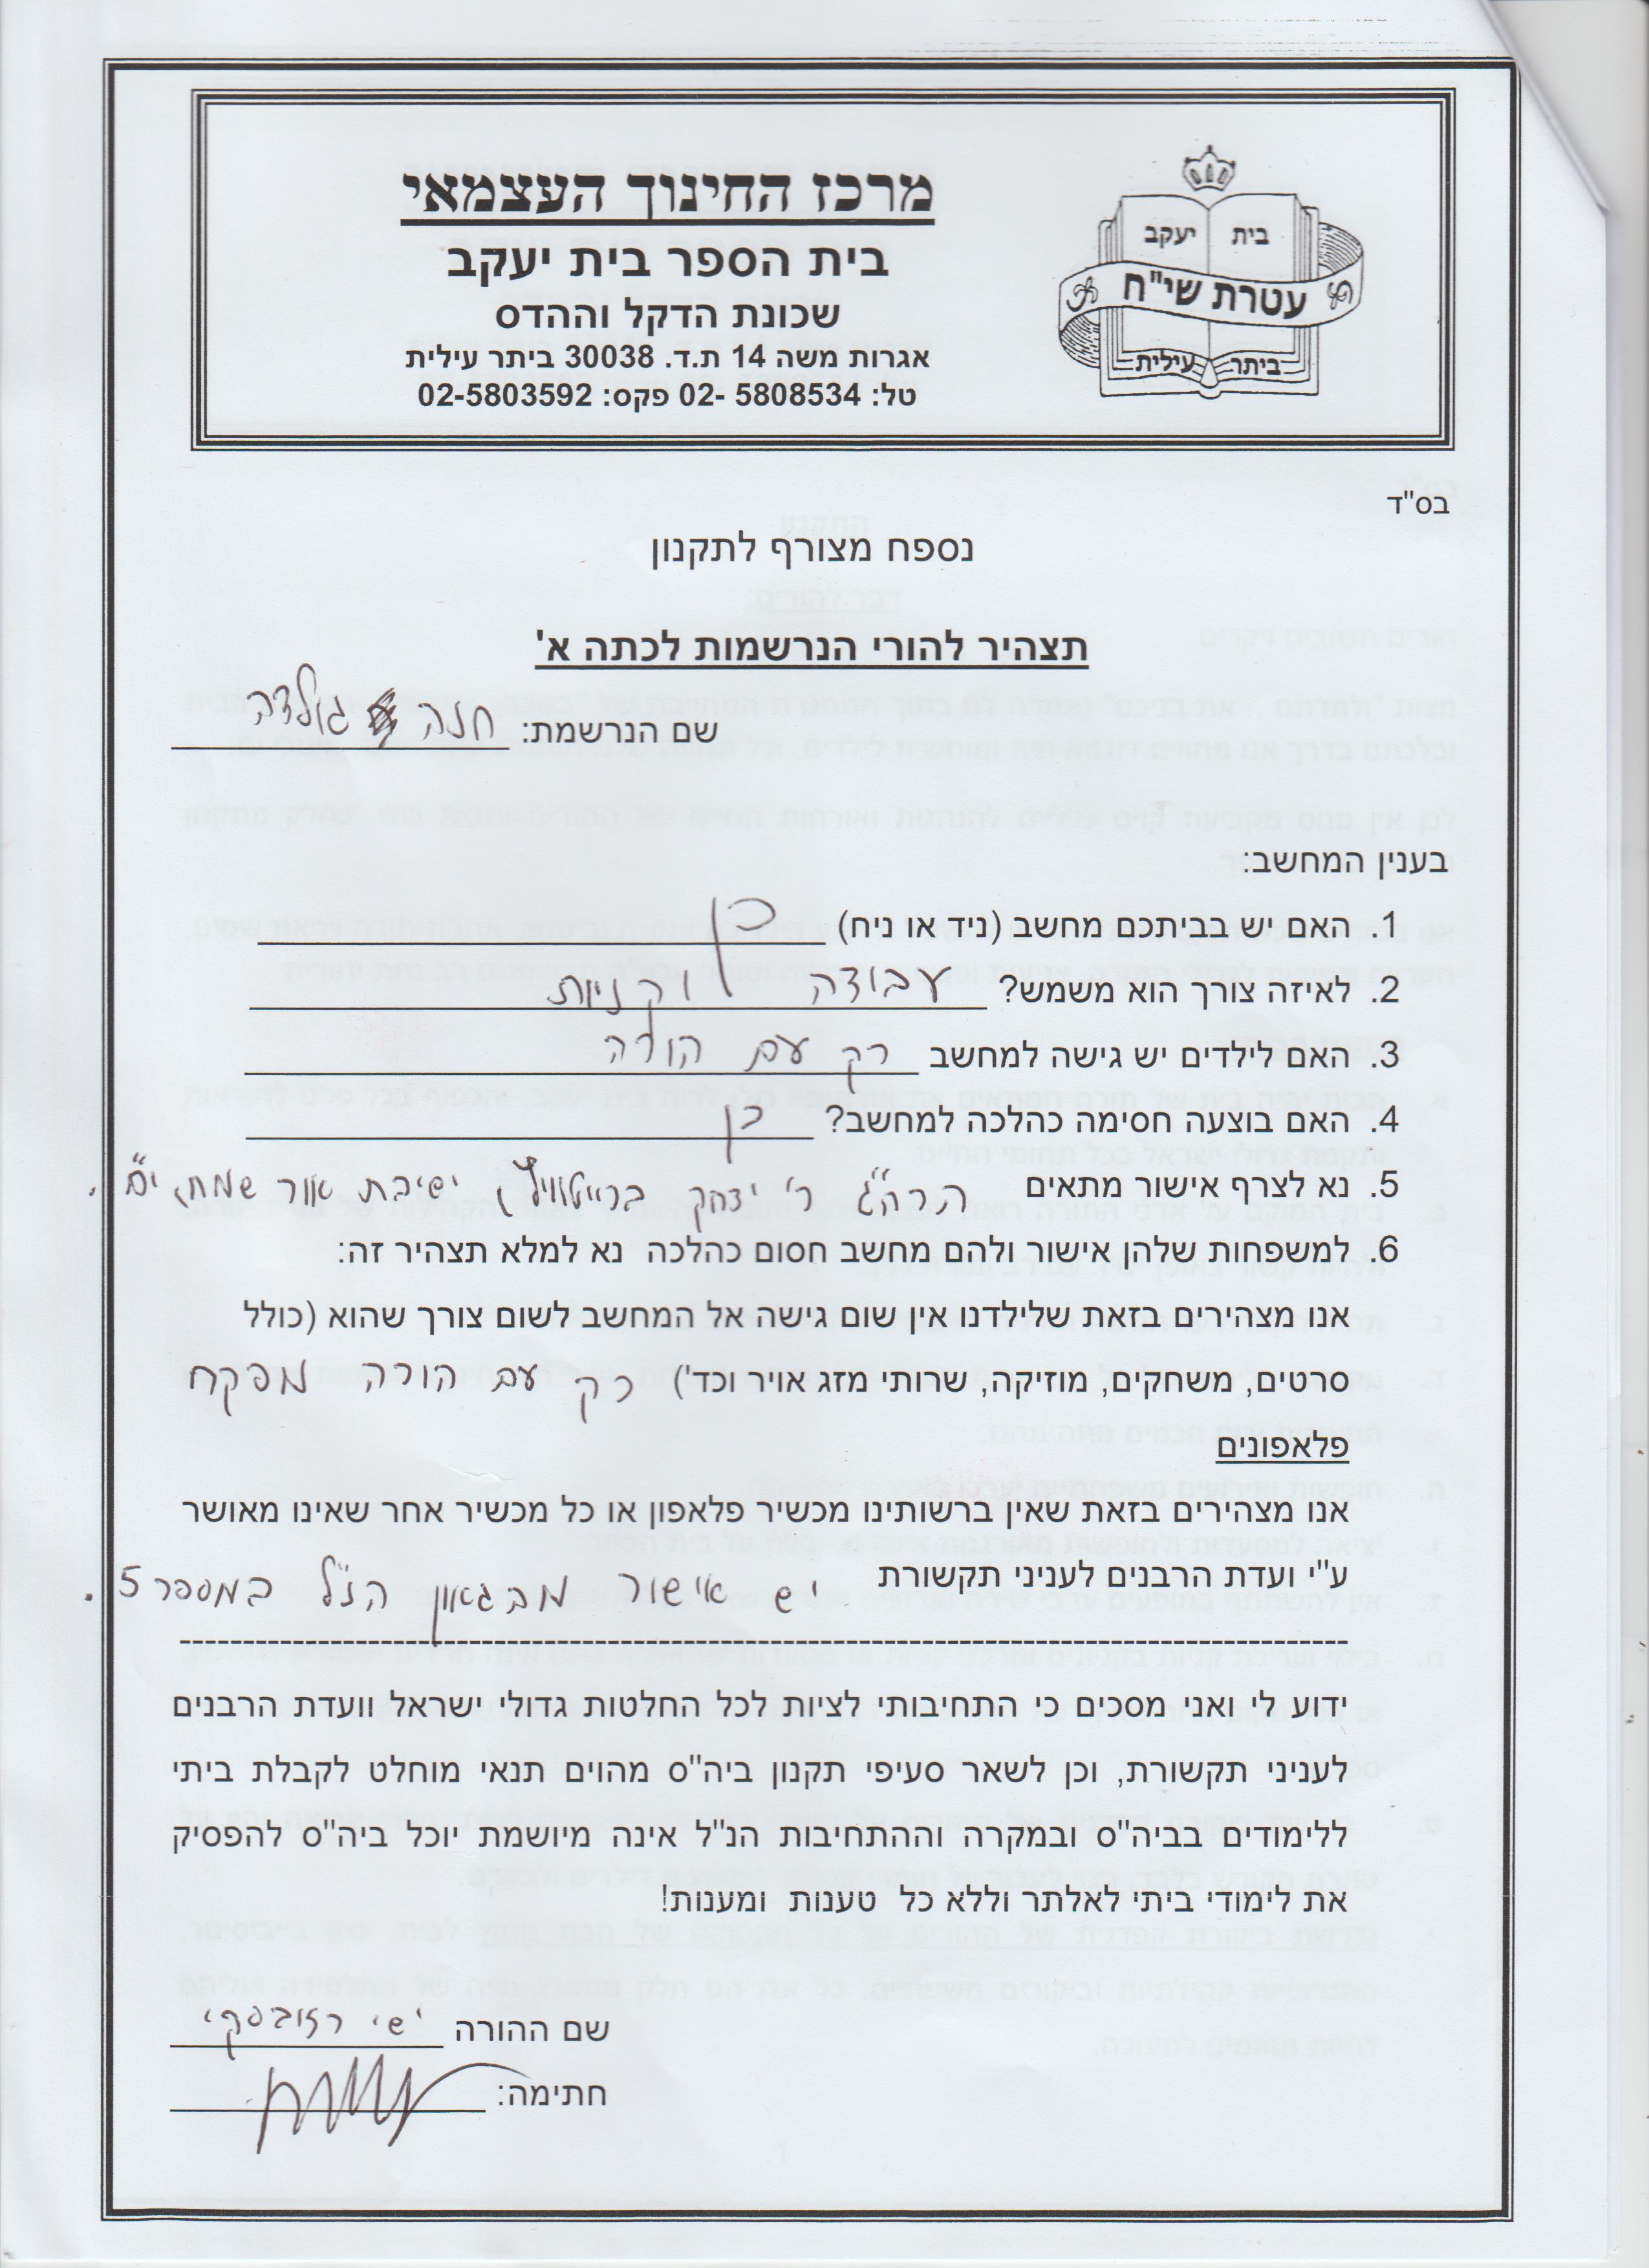 מרכז החינוך העצמאי
בית הספר בית יעקב
שכונת הדקל וההדס
אגרות משה 14 ת.ד. 30038 ביתר עילית
טל: 5808534 -02 פקס: 02-5803592
בית יעקב
עטרת שי"ח
ביתר עילית
בס"ד
נספח מצורף לתקנון
תצהיר להורי הנרשמות לכתה א'
שם הנרשמת: חנה גולדה
בענין המחשב:
1. האם יש בביתכם מחשב (ניד או ניח) כן
2. לאיזה צורך הוא משמש? עבודה וקניות
3. האם לילדים יש גישה למחשב רק עם הורה
4. האם בוצעה חסימה כהלכה למחשב? כן
5. נא לצרף אישור מתאים הרה"ג ר' יצחק ישיבת אור שמח,
6. למשפחות שלהן אישור ולהם מחשב חסום כהלכה נא למלא תצהיר זה:
אנו מצהירים בזאת שלילדנו אין שום גישה אל המחשב לשום צורך שהוא (כולל
סרטים, משחקים, מוזיקה, שרותי מזג אויר וכד') רק עם הורה מפקח
פלאפונים
אנו מצהירים בזאת שאין ברשותינו מכשיר פלאפון או כל מכשיר אחר שאינו מאושר
ע"י ועדת הרבנים לעניני תקשורת יש אישור הנ"ל במספר 5.
ידוע לי ואני מסכים כי התחיבותי לציות לכל החלטות גדולי ישראל וועדת הרבנים
לעניני תקשורת, וכן לשאר סעיפי תקנון ביה"ס מהוים תנאי מוחלט לקבלת ביתי
ללימודים בביה"ס ובמקרה וההתחיבות הנ"ל אינה מיושמת יוכל ביה"ס להפסיק
את לימודי ביתי לאלתר וללא כל טענות ומענות!
שם ההורה ישי רזובסקי
חתימה: